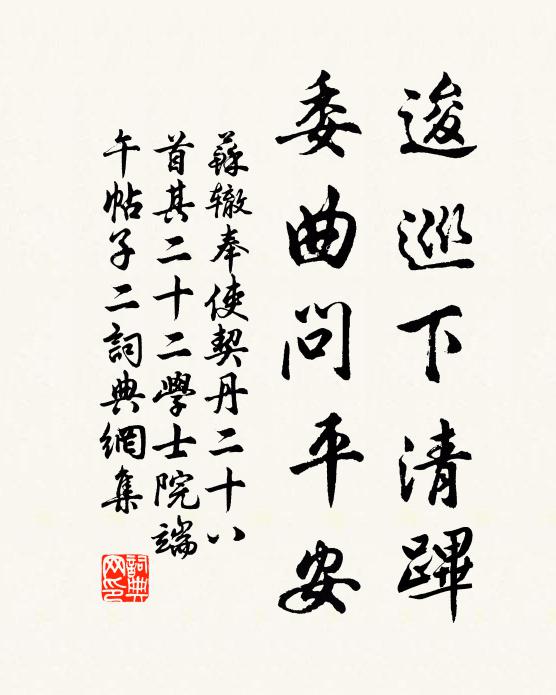 逡巡下清蹕
委曲問平安
蘇辙奉使契丹二十八
首其二十二學士院端
午帖子二詞典網集
詞典网印